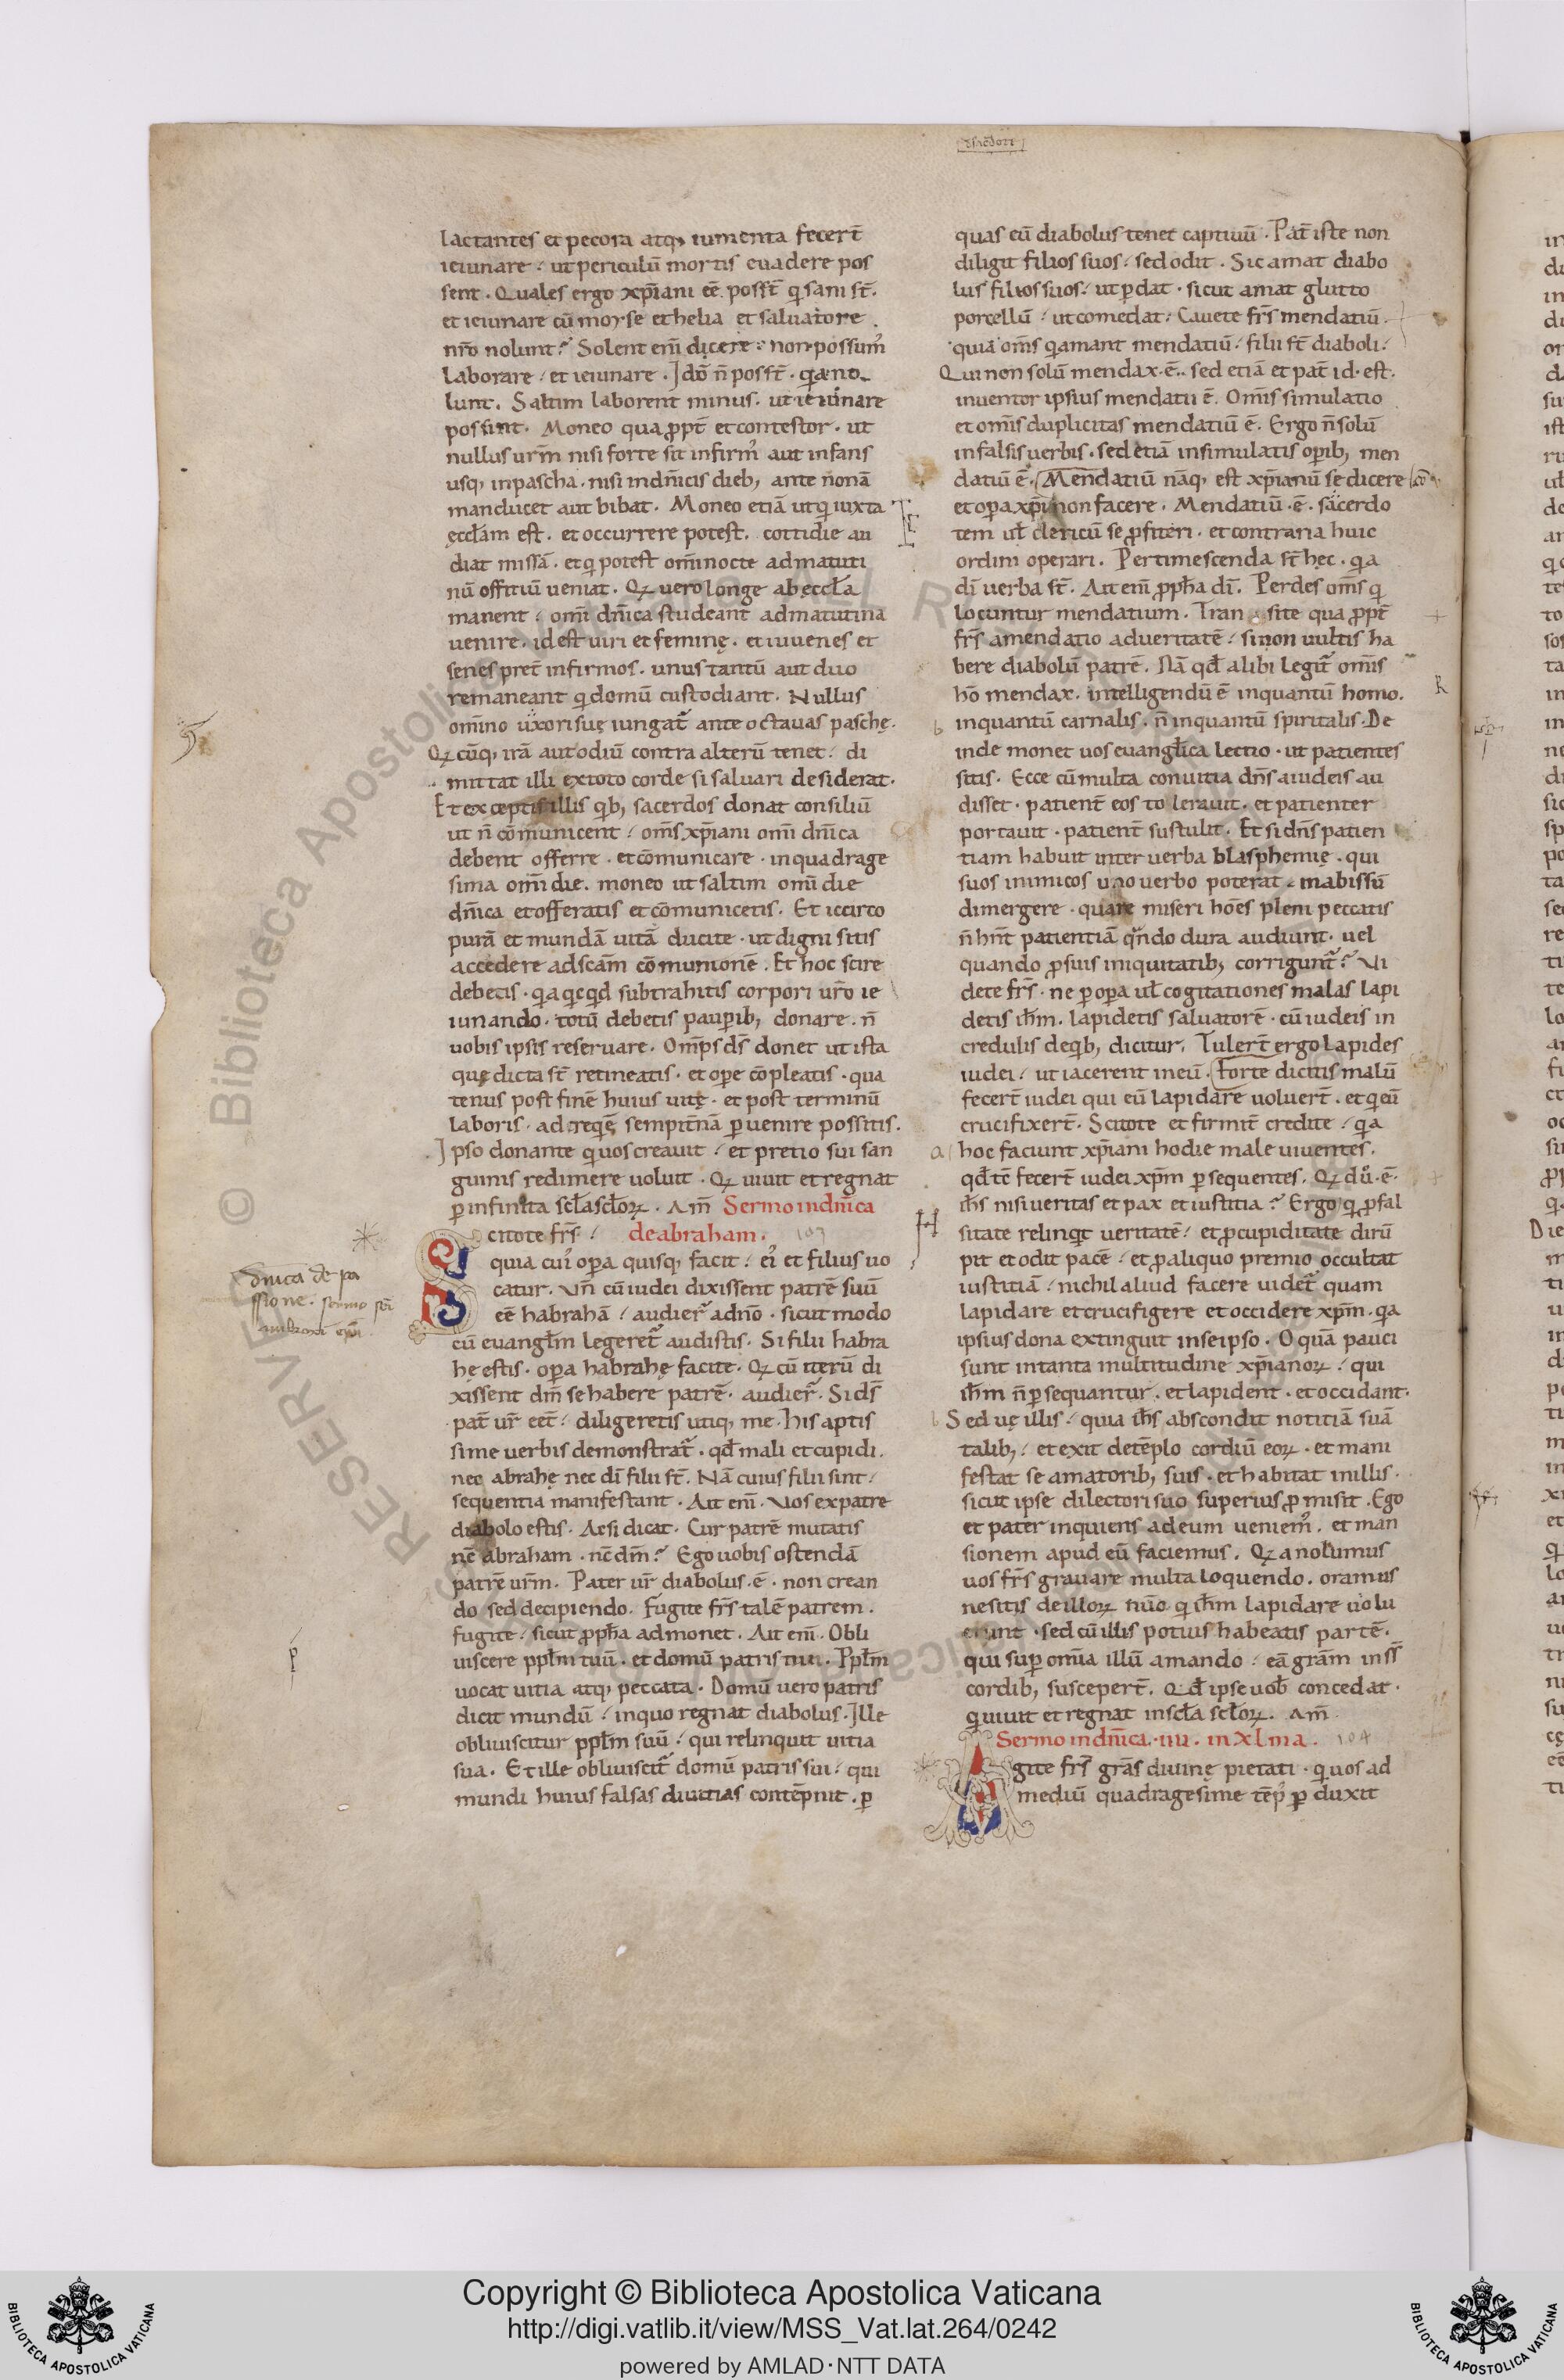 lactantes et pecora atq; iumenta fecert̄
ieiunare / ut periculū mortis euadere pos
sent . Quales ergo xp̄iani eē poss̄t q sani st̄ .
et ieiunare cū moyse et helia et saluatore
nr̄o nolunt ? Solent eni̅ dicere / non possum᾽
laborare / et ieiunare . Ido̅ n̄ poss̄t . q̇a no
lunt . Saltim laborent minus . ut ieiunare
possint . Moneo qua ꝓpt̄ et contestor . ut
nullus ur̄m nisi forte sit infirm᾽ aut infans
usq; in pascha . nisi in dn̄icis dieb; ante nonā
manducet aut bibat . Moneo etiā ut q̇ iuxta
ęccl̄am est . et occurrere potest . cottidie au
diat missā . et q̇ potest om̄i nocte ad matuti
nū offitiū ueniat . Qꝝ uero longe ab ęccl̄a
manent / om̄i dn̄ica studeant ad matutina
uenire . id est uiri et feminę . et iuuenes et
senes pret̄ infirmos . unus tantū aut duo
remaneant q̇ domū custodiant . Nullus
om̄ino uxori suę iungat᾽ ante octauas paschę .
Qꝝ cūq; irā aut odiū contra alterū tenet / di
mittat illi ex toto corde si saluari desiderat .
Et exceptis illis q̇b; sacerdos donat consiliū
ut n̄ cōmunicent / om̄s xp̄iani om̄i dn̄ica
debent offerre . et cōmunicare . in quadrage
sima om̄i die . moneo ut saltim om̄i die
dn̄ica et offeratis et cōmunicetis . Et iccirco
purā et mundā uitā ducite . ut digni sitis
accedere ad sc̄am cōmunionē . Et hoc scire
debetis . q̇a q̇cq̇d subtrahitis corpori ur̄o ie
iunando . totū debetis pauꝑib; donare . n̄
uobis ipsis reseruare . Om̄ps ds̄ donet ut ista
quę dicta st̄ retineatis . et oꝑe cōpleatis . qua
tenus post finē huius uitę . et post terminū
laboris . ad reqēs sempit̄nā ꝑuenire possitis .
Ipso donante q̇ uos creauit / et pretio sui san
guinis redimere uoluit . Qꝝ uiuit et regnat
ꝑ infinita scl̄a scl̄oꝝ . Am̄ Sermo in dn̄ica
de abraham . 103
Scitote fr̄s /
quia cui᾽ oꝑa quisq; facit / ei᾽ et filius uo
catur . Vn̄ cū iudei dixissent patrē suū
eē habrahā / audier̄ a dn̄o . sicut modo
cū euangl̄m legeret᾽ audistis . Si filii habra
hę estis . oꝑa habrahę facite . Qꝝ cū iterū di
xissent dm̄ se habere patrē . audier̄ . Si ds̄
pat̄ ur̄ eet̄ / diligeretis utiq; me . His aptis
sime uerbis demonstrat᾽ . qd̄ mali et cupidi .
nec abrahę nec di̅ filii st̄ . Nā cuius filii sint /
sequentia manifestant . Ait eni̅ . Vos ex patre
diabolo estis . Ac si dicat . Cur patrē mutatis
nē abraham . nc̄ dm̄ ? Ego uobis ostendā
patrē ur̄m . Pater ur̄ diabolus . ē . non crean
do sed decipiendo . Fugite fr̄s talē patrem .
fugite / sicut ꝓph̄a admonet . Ait eni̅ . Obli
uiscere ppl̄m tuū . et domū patris tui . Ppl̄m
uocat uitia atq; peccata . Domū uero patris
dicit mundū / in quo regnat diabolus . Ille
obliuiscitur ppl̄m suū / qui relinquit uitia
sua . Et ille obliuiscit᾽ domū patris sui / qui
mundi huius falsas diuitias contēpnit . ꝑ
dn̄ica de pa
ssione . sermo sc̄i
ambrosii ep̄i
quas eū diabolus tenet captiuū . Pat̄ iste non
diligit filios suos / sed odit . Sic amat diabo
lus filios suos / ut ꝑdat . sicut amat glutto
porcellū / ut comedat . Cauete fr̄s mendatiū .
quia om̄s q̇ amant mendatiū / filii st̄ diaboli /
Qui non solū mendax . ē . sed etiā et pat̄ id . est .
inuentor ipsius mendatii ē . Om̄is simulatio
et om̄is duplicitas mendatiū ē . Ergo n̄ solū
in falsis uerbis . sed etiā in simulatis oꝑib; men
datiū ē . Mendatiū nāq; est xp̄ianū se dicere
et oꝑa xp̄i non facere . Mendatiū . ē . sacerdo
tem ul̄ clericū se ꝓfiteri . et contraria huic
ordini operari . Pertimescenda st̄ hec . q̇a
di̅ uerba st̄ . Ait eni̅ ꝓph̄a di̅ . Perdes om̄s q̇
locuntur mendatium . Transite qua ꝓpt̄
fr̄s a mendatio ad ueritatē / si non uultis ha
bere diabolū patrē . Nā qd̄ alibi legit᾽ om̄is
ho̅ mendax . intelligendū ē in quantū homo .
inquantū carnalis . n̄ inquantū spiritalis . De
inde monet uos euangl̄ica lectio . ut patientes
sitis . Ecce cū multa conuitia dn̄s a iudeis au
disset . patient̄ eos tolerauit . et patienter
portauit . patient̄ sustulit . Et si dn̄s patien
tiam habuit inter uerba blasphemię . qui
suos inimicos uno uerbo poterat in abissū
dimergere . quare miseri ho̅es pleni peccatis
n̄ hn̄t patientiā qn̄do dura audiunt . uel
quando ꝓ suis iniquitatib; corrigunt᾽ ? Vi
dete fr̄s . ne ꝑ oꝑa ul̄ cogitationes malas lapi
detis ih̄m . lapidetis saluatorē . cū iudeis in
credulis de q̇b; dicitur . Tulert̄ ergo lapides
iudei / ut iacerent in eū . Forte dicitis malū
fecert̄ iudei qui eū lapidare uoluert̄ . et q̇ eū
crucifixert̄ . Scitote et firmit̄ credite / q̇a
hoc faciunt xp̄iani hodie male uiuentes .
qd̄ tc̄ fecert̄ iudei xp̄m ꝑsequentes . Qꝝ du᾽ . ē .
ih̄s nisi ueritas et pax et iustitia ? Ergo q̇ ꝓ fal
sitate relinq̇t ueritatē / et ꝓ cupiditate diru̅
pit et odit pacē / et ꝓ aliquo premio occultat
iustitiā / nichil aliud facere uidet᾽ quam
lapidare et crucifigere et occidere xp̄m . q̇a
ipsius dona extinguit in se ipso . O quā pauci
sunt in tanta multitudine xp̄ianoꝝ / qui
ih̄m n̄ ꝑsequantur . et lapident . et occidant .
Sed uę illis / quia ih̄s abscondit notitiā suā
talib; / et exit de tēplo cordiū eoꝝ . et mani
festat se amatorib; suis . et habitat in illis .
sicut ipse dilectori suo superius ꝓmisit . Ego
et pater inquiens ad eum ueniem᾽ . et man
sionem apud eū faciemus . Qꝝ a nolumus
uos fr̄s grauare multa loquendo . oramus
ne sitis de illoꝝ nūo q̇ ih̄m lapidare uolu
erunt . sed cū illis potius habeatis partē .
qui suꝑ omīa illū amando / eā grām in ss̄
cordib; suscepert̄ . Qd̄ ipse uob̄ concedat .
q̇ uiuit et regnat in scl̄a scl̄oꝝ . Am̄
Sermo in dn̄ica . iiii . in xl ma . 104
Agite fr̄s grās diuinę pietati . q̇ uos ad
mediū quadragesime tēp᾽ ꝑduxit
RESERVED © Biblioteca Apostolica Vaticana ALL RIGHTS
Copyright © Biblioteca Apostolica Vaticana
http://digi.vatlib.it/view/MSS_Vat.lat.264/0242
powered by AMLAD·NTT DATA
BIBLIOTECA APOSTOLICA VATICANA
BIBLIOTECA APOSTOLICA VATICANA